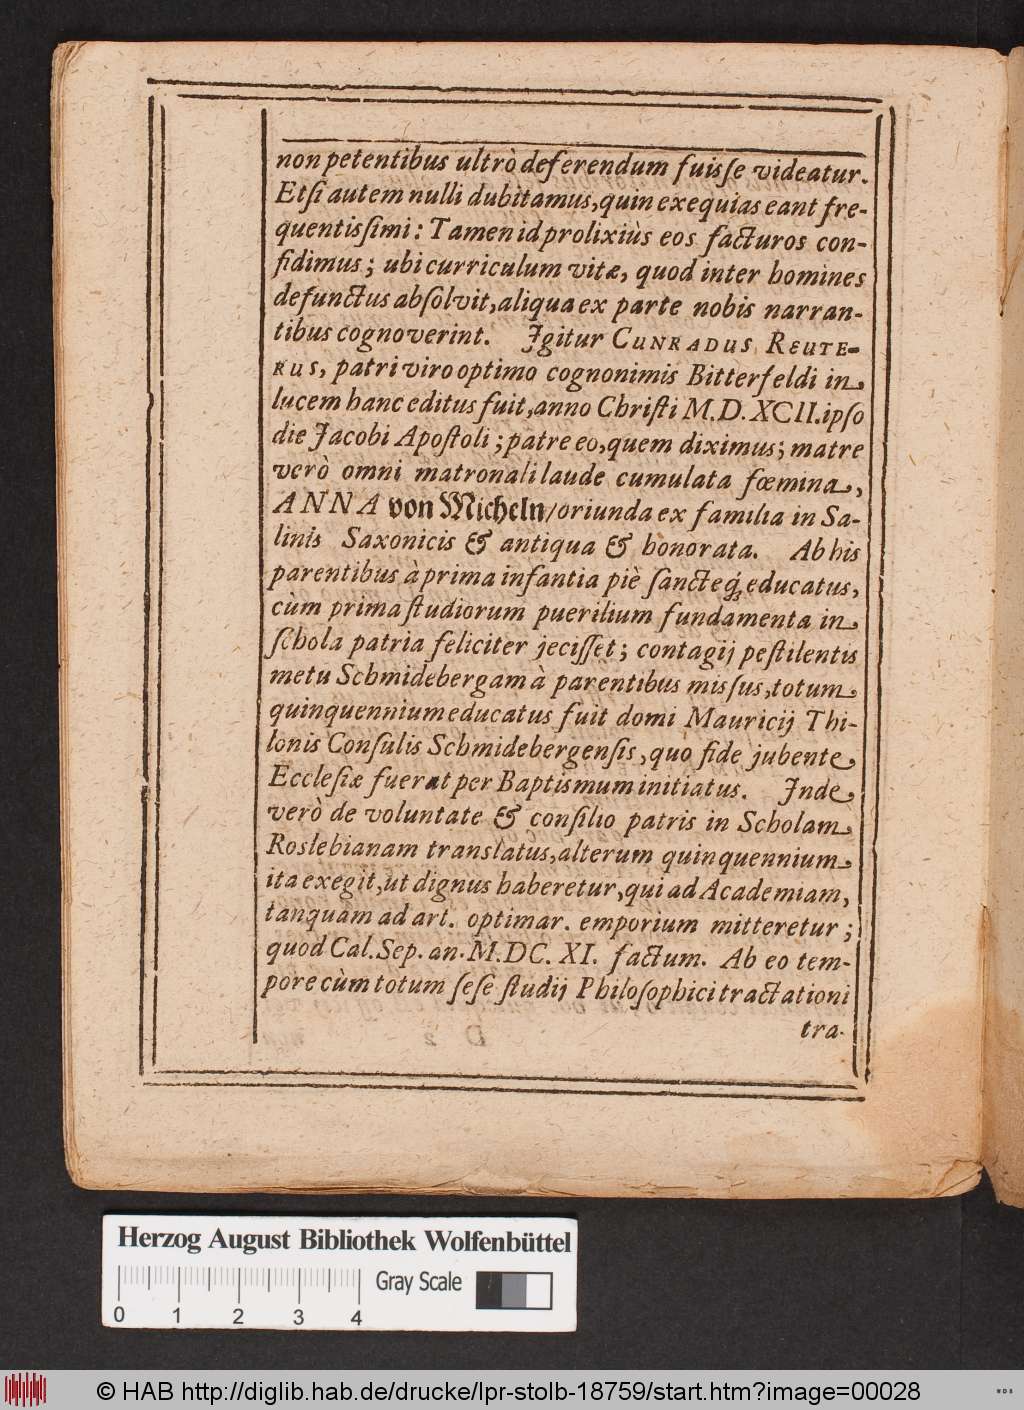 non petentibus ultrò deferendum fuisſe videatur.
Etſi autem nulli dubitamus, quin exequias eant fre-
quentisſimi: Tamen id prolixiùs eos facturos con-
fidimus; ubi curriculum vitæ, quod inter homines
defunctus abſolvit, aliqua ex parte nobis narran-
tibus cognoverint. Igitur CUNRADUS REUTE-
RUS, patri viro optimo cognonimis Bitterfeldi in
lucem hanc editus fuit, anno Chriſti M.D.XCII. ipſo
die Jacobi Apoſtoli; patre eo, quem diximus; matre
verò omni matronali laude cumulata fœmina,
ANNA von Micheln/ oriunda ex familia in Sa-
linis Saxonicis & antiqua & honorata. Ab his
parentibus à prima infantia piè ſancteq́ꝫ educatus,
cùm prima ſtudiorum puerilium fundamenta in
ſchola patria feliciter jeciſſet; contagij peſtilentis
metu Schmidebergam à parentibus misſus, totum
quinquennium educatus fuit domi Mauricij Thi-
lonis Conſulis Schmidebergenſis, quo fide jubente
Eccleſiæ fuerat per Baptismum initiatus. Inde
verò de voluntate & conſilio patris in Scholam
Roslebianam translatus, alterum quinquennium
ita exegit, ut dignus haberetur, qui ad Academiam,
tanquam ad art. optimar. emporium mitteretur;
quod Cal. Sep. an. M.DC. XI. factum. Ab eo tem-
pore cùm totum ſeſe ſtudij Philoſophici tractationi
tra-
Herzog August Bibliothek Wolfenbüttel
Gray Scale
0 1 2 3 4
© HAB http://diglib.hab.de/drucke/lpr-stolb-18759/start.htm?image=00028